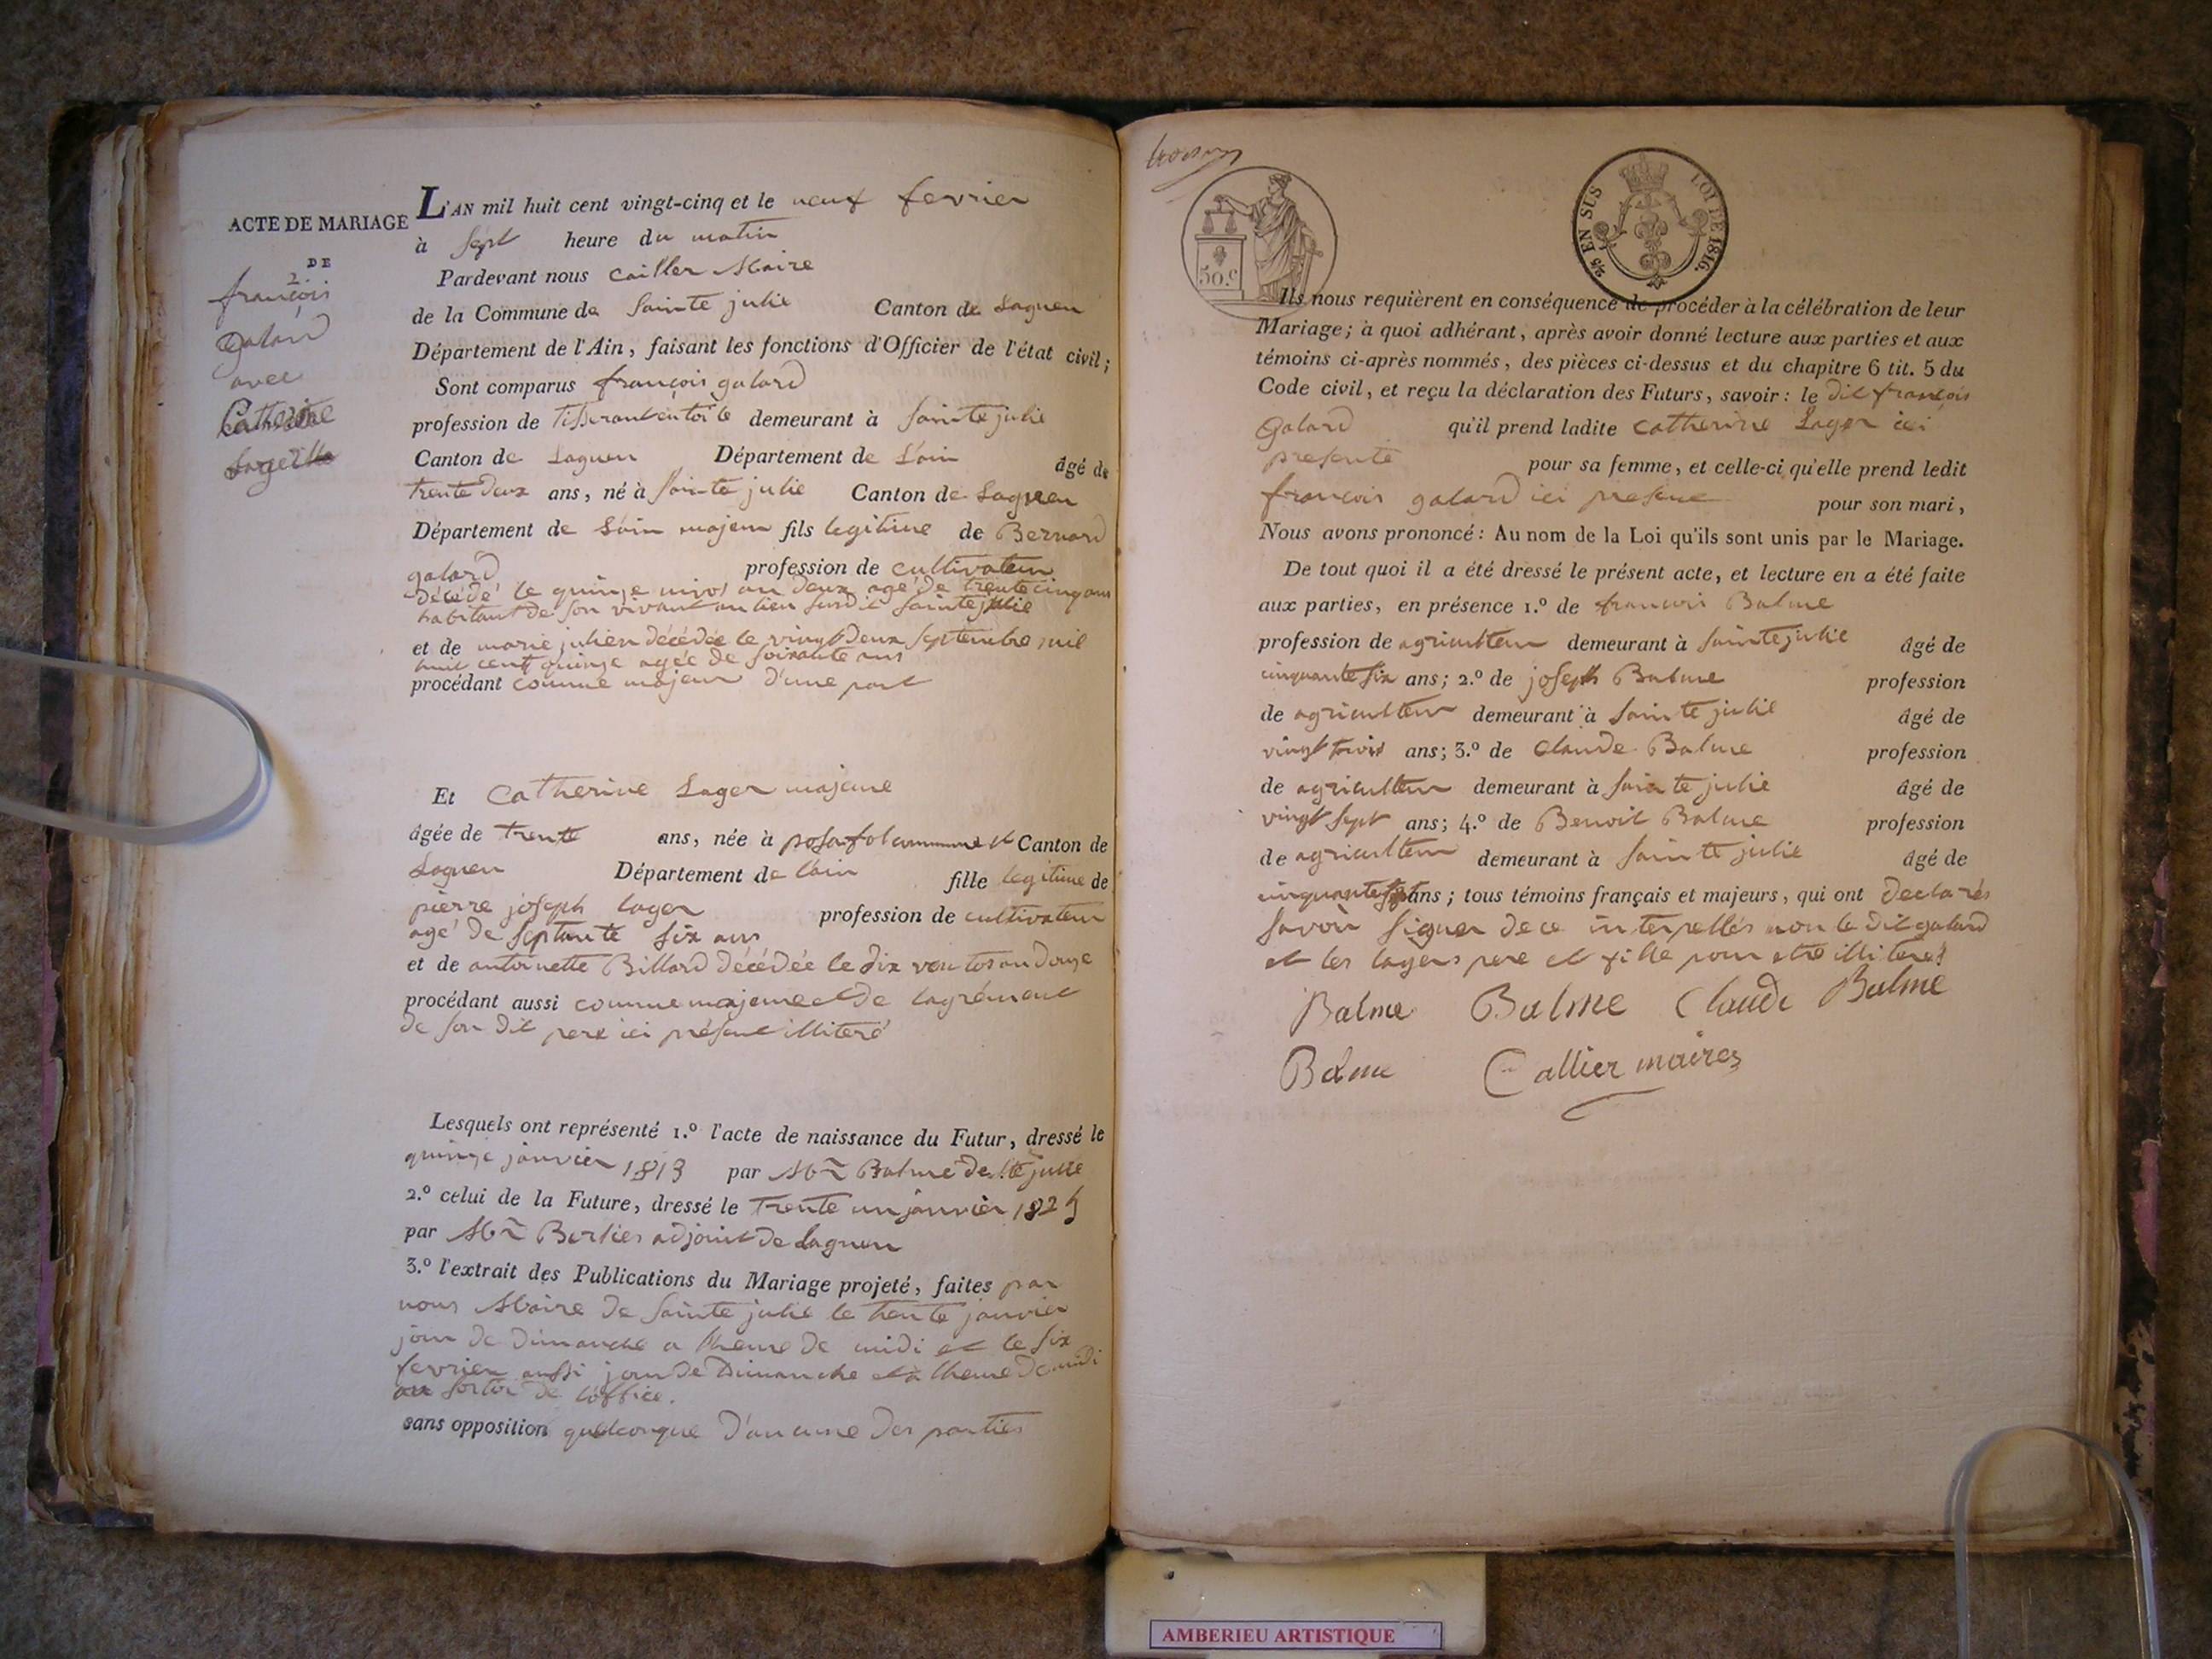 ACTE DE MARIAGE
DE
2.
françois
Galard
avec
Catherine
L'AN mil huit cent vingt-cinq et le neuf fevrier
à sept heure du matin
Pardevant nous Cailler Maire
de la Commune de Sainte julie Canton de Lagneu
Département de l'Ain, faisant les fonctions d'Officier de l'état civil;
Sont comparus françois galard
profession de Tisserant en toile demeurant à Sainte julie
Canton de Lagneu Département de L'ain âgé de
trente deux ans, né à Sainte julie Canton de Lagneu
Département de Lain majeur fils legitime de Bernard
galard profession de cultivateur
décédé le quinze nivos an deux agé de trente cinq ans
habitant de son vivant au lieu susdit Sainte julie
et de marie julien décédée le vingt deux septembre mil
huit cent quinze agée de soixante ans
procédant comme majeur d'une part
Et Catherine Lager majeure
âgée de trente ans, née à posafol commune et Canton de
Lagneu Département de l'ain fille legitime de
pierre joseph lager profession de cultivateur
agé de septante six ans
et de antoinette Billard décédée le dix ventos an douze
procédant aussi comme majeure et de lagrément
de son dit pere ici présent illiteré
Lesquels ont représenté 1.º l'acte de naissance du Futur, dressé le
quinze janvier 1813 par Mr Balme de Ste julie
2.º celui de la Future, dressé le trente un janvier 1825
par Mr Berlier adjoint de Lagneu
3.º l'extrait des Publications du Mariage projeté, faites par
nous Maire de Sainte julie le trente janvier
jour de dimanche a lheure de midi et le six
fevrier aussi jour de Dimanche et à lheure de midi
au sortir de l'office.
sans opposition quelconque d'aucune des parties
50.c
25 EN SUS LOI DE 1816.
Ils nous requièrent en conséquence de procéder à la célébration de leur
Mariage; à quoi adhérant, après avoir donné lecture aux parties et aux
témoins ci-après nommés, des pièces ci-dessus et du chapitre 6 tit. 5 du
Code civil, et reçu la déclaration des Futurs, savoir: le dit françois
Galard qu'il prend ladite Catherine Lager ici
presente pour sa femme, et celle-ci qu'elle prend ledit
françois galard ici present pour son mari,
Nous avons prononcé: Au nom de la Loi qu'ils sont unis par le Mariage.
De tout quoi il a été dressé le présent acte, et lecture en a été faite
aux parties, en présence 1.º de francois Balme
profession de agriculteur demeurant à Sainte julie âgé de
cinquante six ans; 2.º de joseph Balme profession
de agriculteur demeurant à Sainte julie âgé de
vingt trois ans; 3.º de Claude Balme profession
de agriculteur demeurant à Sainte julie âgé de
vingt sept ans; 4.º de Benoit Balme profession
de agriculteur demeurant à Sainte julie âgé de
cinquante ans; tous témoins français et majeurs, qui ont declarés
savoir signer de ce interpellés non le dit galard
et les lagers pere et fille pour etre illiterés
Balme Balme Claude Balme
Balme Callier maire
AMBERIEU ARTISTIQUE